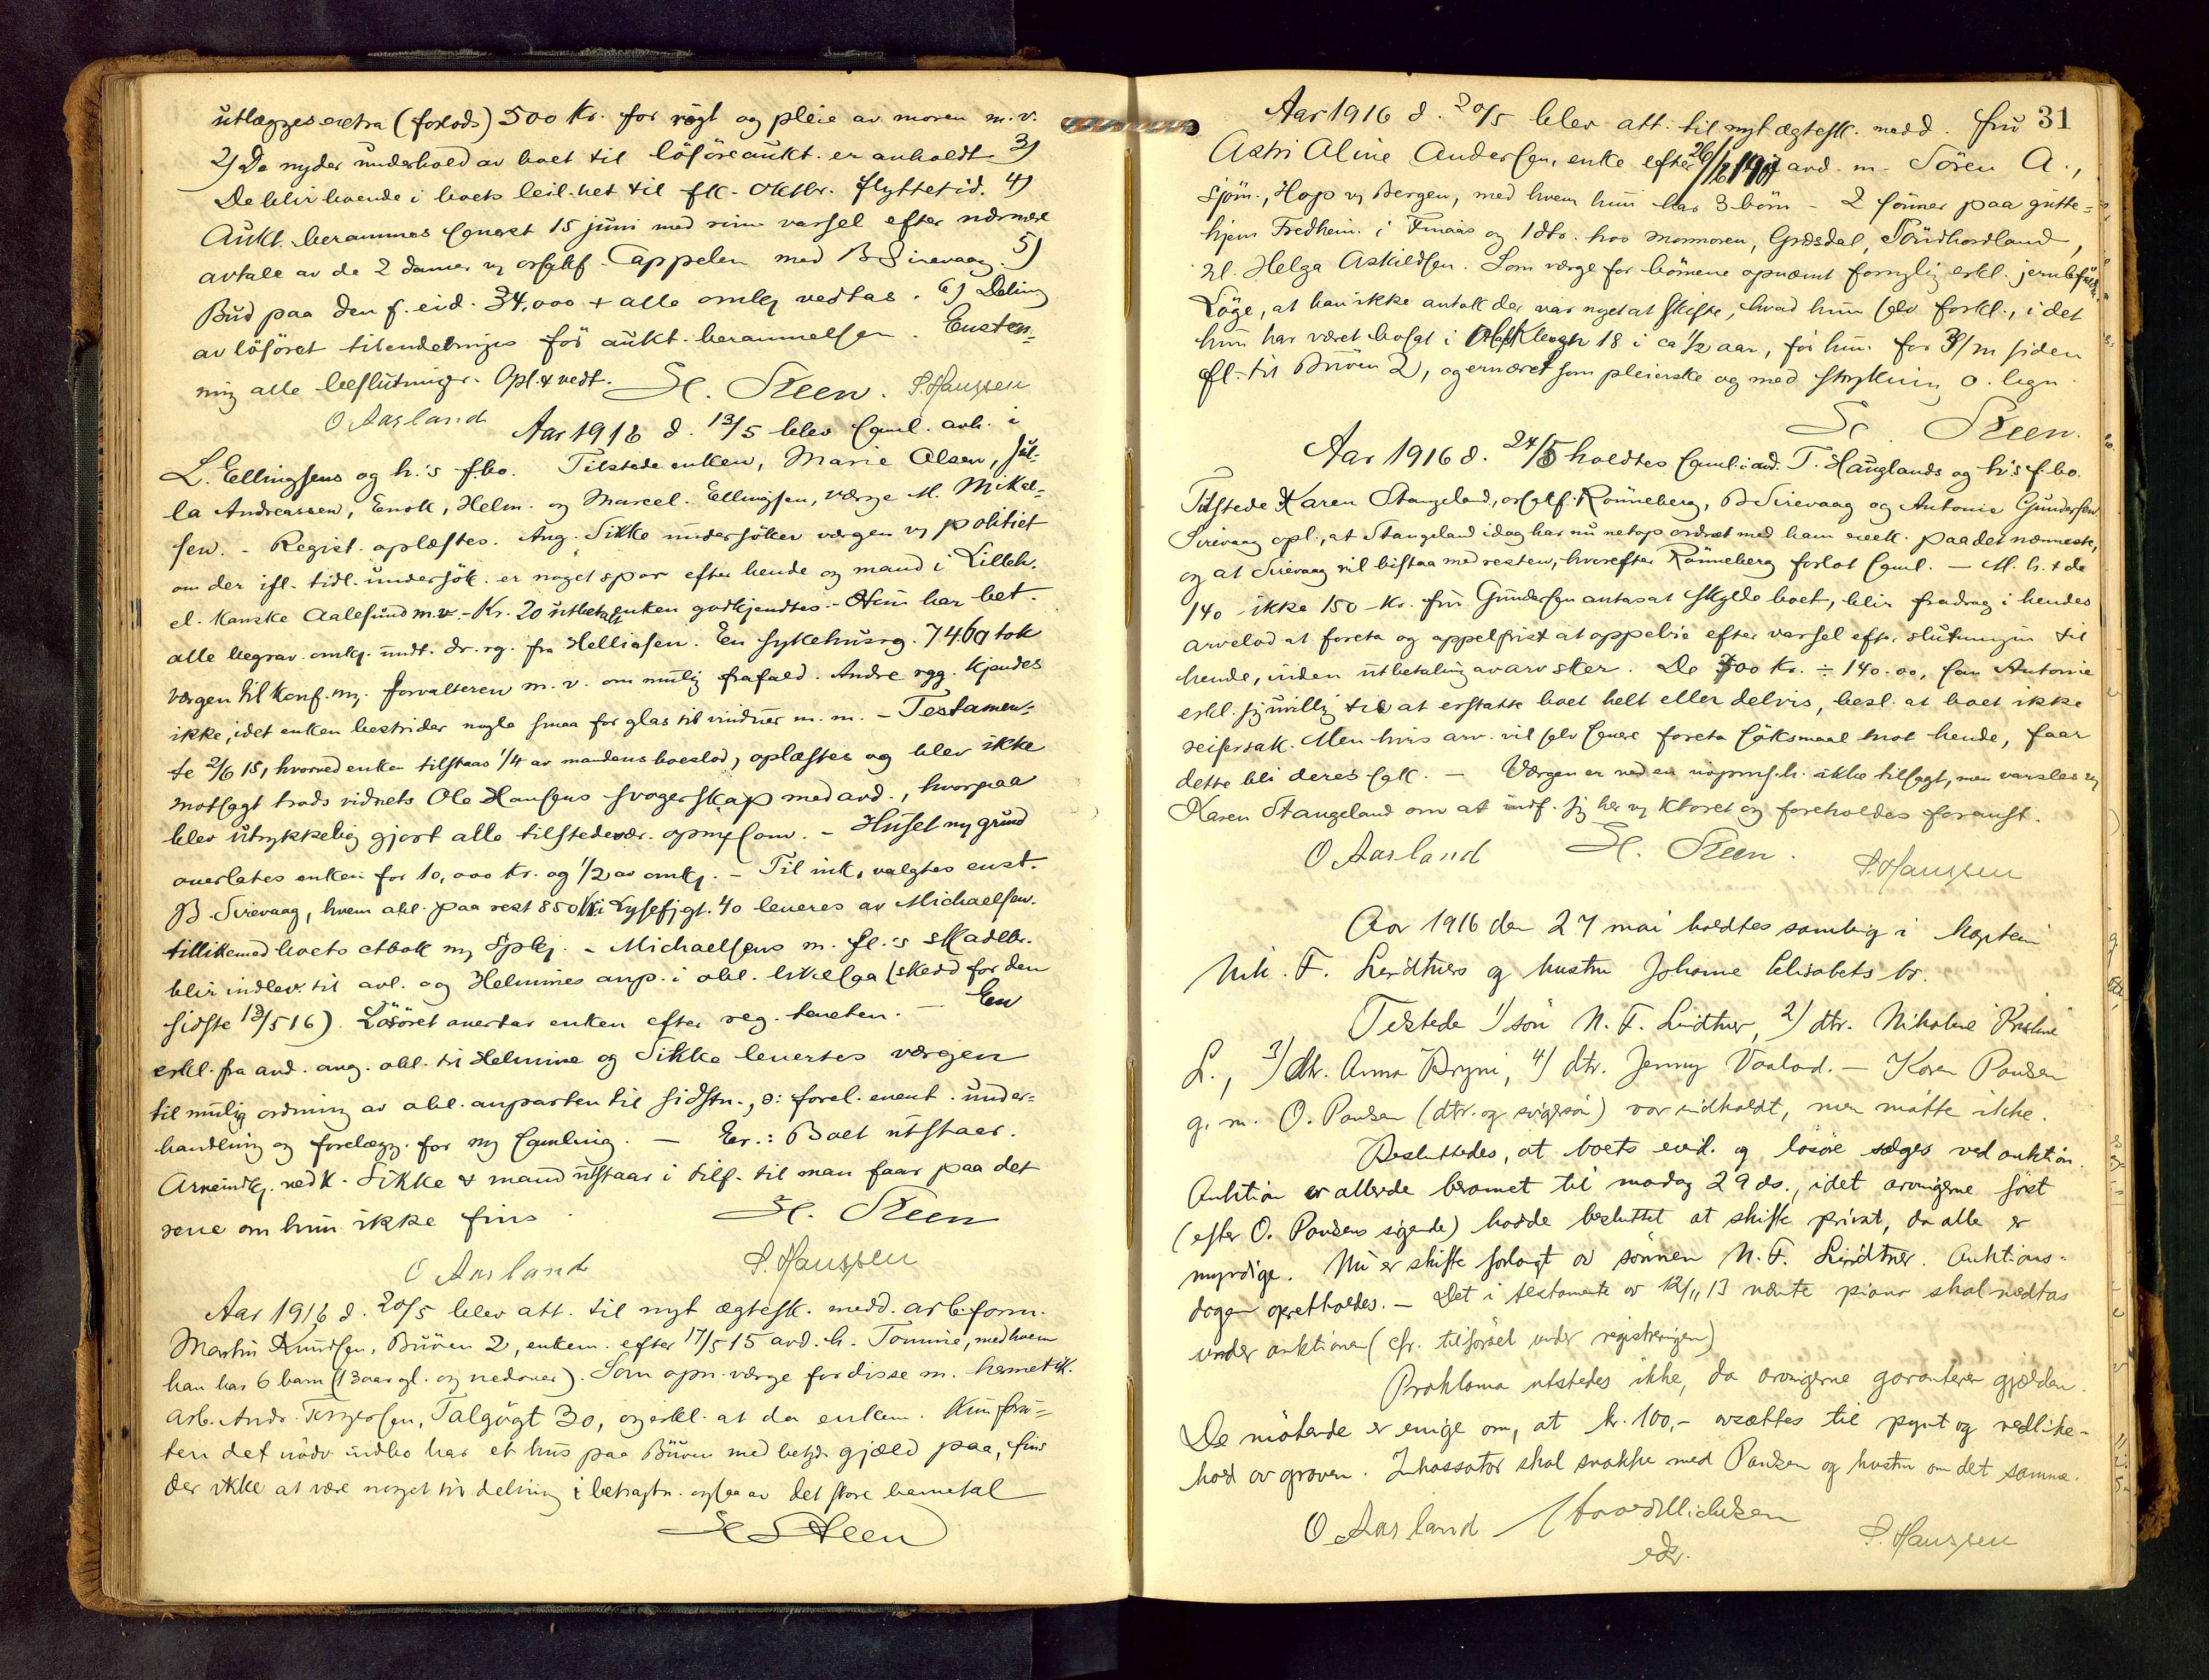 utlægges extra (forlods) 500 kr. for røgt og pleie av moren m.v.
2) De nyder underhold av boet til løsøreaukt. er avholdt 3)
De blir boende i boets leil.het til fk. Oktbr. flyttetid. 4)
Aukt. berammes senest 15 juni med rim varsel efter nærmere
avtale av de 2 damer og orsakf. Cappelen med B Sirevaag. 5)
Bud paa den f. eid. 34.000 + alle omkg vedtas. 6) Deling
av løsøret tilendebringes før aukt. berammelsen. Enstem=
mig alle beslutninger. Opl. & vedt. Sc. Steen. S. Hanssen
O Aasland
Aar 1916 d. 13/5 blev saml. avh. i
L. Ellingsens og h.'s f.bo. Tilstede enken, Marie Olsen, Jul=
la Andreassen, Enok, Helm. og Marcel. Ellingsen, værge M. Mikal=
sen. - Regist. oplæstes. Ang. Sikke undersøker værgen og politiet
om der ifl. tidl. undersøk. er noget spor efter hende og mand i Lilleh.
el. kanske Aalesund m.v. - Kr. 20 utbetalt enken godkjendtes. - Hun har bet.
alle begrav. omkg. undt. dr. rg. fra Helliesen. En sykehusrg. 7460 tok
værgen til konf. m. forvalteren m.v. om mulig frafald. Andre rgg. kjendes
ikke, idet enken bestrider nogle smaa for glas til vinduer m.m. - Testamen=
te 2/6 15, hvorved enken tilstaas 1/4 av mandens boeslod, oplæstes og blev ikke
motsagt trods vidnets Ole Hansens svogerskap med avd., hvorpaa
blev utrykkelig gjort alle tilstedevær. opmerksom. - Huset m grund
overlates enken for 10,000 kr. og 1/2 av omkg. - Til ink. valgtes enst.
B. Sirevaag, hvem obl. paa rest 850 kr i Lysefjgt. 40 leveres av Michaelsen.
tillikemed boets ctbok m Spkj. - Michaelsens m. fl.'s skadebr.
blir indlev. til avl. og Helmines anp. i obl. likesaa (skedd for den
sidste 13/5 16). Løsøret overtar enken efter reg. taxten. - En
erkl. fra avd. ang. obl. til Helmine og Sikke leveres værgen
til mulig ordning av obl. anparten til sidstn., ɔ: forel. event. under=
handling og forelægg. for ny samling. - Er.: Boet utstaar.
Arveindk. ved k. Sikke & mand utstaar i tilf. til man faar paa det
rene om hun ikke fins.
Sc. Steen
O Aasland S. Hanssen
Aar 1916 d. 20/5 blev att. til nyt ægtesk. medd. arb. form.
Martin Knudsen, Buøen 2, enkem. efter 17/5 15 avd. h. Tomine, med hvem
han har 6 barn (13 aar gl. og nedover). Som opn. værge for disse m. hermetik.
arb. Andr. Torgersen, Talgøgt 30, og erkl. at da enkem. kun foru=
ten det nødv indbo har et hus paa Buøen med betyd. gjæld paa, fins
der ikke at være noget til deling i betragtn. ogsaa av det store barnetal
Sc Steen
31
Aar 1916 d. 20/5 blev att. til nyt ægtesk. medd. fru
Astri Aline Andersen, enke efter 26/12 1907 avd. m. Søren A.,
sjøm., Hop v Bergen, med hvem hun har 3 børn - 2 sønner paa gutte=
hjem Fredheim i Finaas og 1 dtr. hos mormoren, Grødsdal, Søndhordland,
Helga Askildsen. Som værge for børnene opnæmt fornylig erkl.
Løge, at han ikke antok der var noget at skifte, hvad hun selv forkl., i det
hun har været bosat i 18 i ca 1/2 aar, før hun for 3/m siden
fl. til Buøen 2, og ernæret som pleierske og med strykning o. lign.
Sc. Steen.
Aar 1916 d. 24/5 holdtes saml. i avd. T. Hauglands og h's f.bo.
Tilstede Karen Stangeland, orsakf. Rønneberg, B Sirevaag og Antonie Gundersen.
Sirevaag opl., at Stangeland idag har nu netop ordnet med ham paa det nærmeste,
og at Sirevaag vil bistaa med resten, hvorefter Rønneberg forlot saml. - M. h. t. de
140 ikke 150 - kr. fru Gundersen antas at skylde boet, blir fradrag i hendes
arvelod at foreta og appelfrist at oppebie efter varsel eftr. slutningen til
hende, inden utbetaling av arv sker. De 300 kr. ÷ 140.00, som Antonie
erkl. sig uvillig til at erstatte boet helt eller delvis, besl. at boet ikke
reiser sak. Men hvis arv. vil selv senere foreta søksmaal mot hende, faar
dette bli deres sak. - Værgen er ved en uopmrs.h. ikke tilsagt, men varsles
Karen Stangeland om at indf. sig her og foreholdes foranst.
O Aasland Sc. Steen. S. Hanssen
Aar 1916 den 27 mai holdtes samling i kaptein
Nik. F. Lindtners og hustru Johanne Elisabets bo.
Tilstede 1) søn N. F. Lindtner, 2) dtr. Nikoline Kristine
L., 3) dtr. Anna Bryni, 4) dtr. Jenny Vaaland. - Karen Paulsen
g. m. O. Paulsen (dtr. og svigersøn) var indkaldt, men møtte ikke.
Besluttedes, at boets eied. og løsøre sælges ved auktion.
Auktion er allerede beramet til mandag 29 ds., idet arvingerne først
(efter O. Paulsens sigende) hadde besluttet at skifte privat, da alle er
myndige. Nu er skifte forlangt av sønnen N. F. Lindtner. Auktions=
dagen opretholdes. - Det i testamente av 12/11 13 nævnte piano skal medtas
under auktionen (cfr. tilførsel under registreringen)
Proklama utstedes ikke, da arvingerne garanterer gjælden.
De møtende er enige om, at kr. 100,- avsættes til pynt og vedlike-
hold av graven. Inkassator skal snakke med Paulsen og hustru om det samme.
O Aasland S. Hanssen